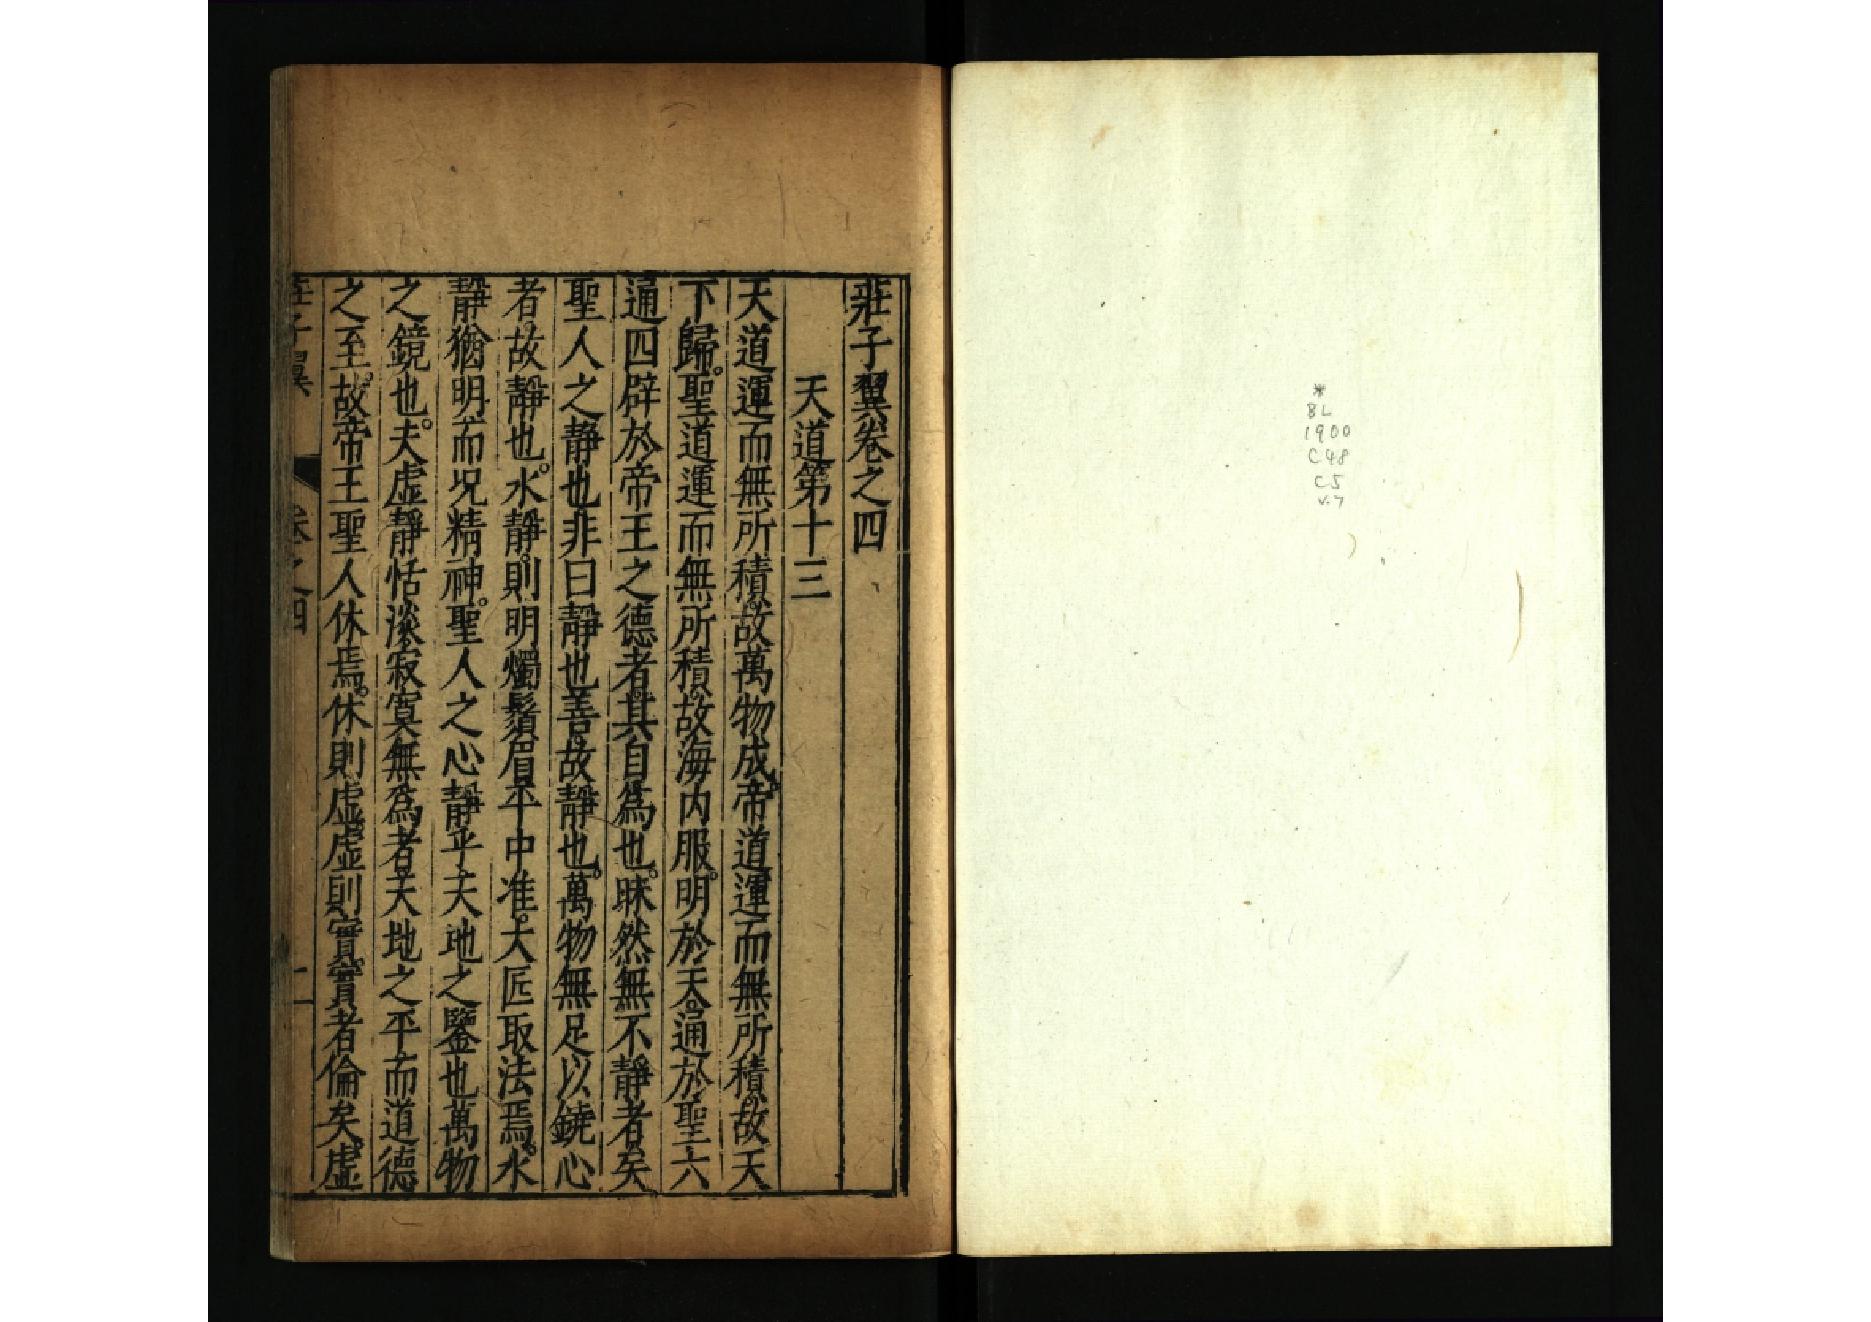 莊子翼卷之四
天道第十三
天道運而無所積。故萬物成。帝道運而無所積。故天
下歸。聖道運而無所積。故海内服。明於天。通於聖。六
通四辟於帝王之德者。其自爲也。昧然無不靜者矣
聖人之靜也。非曰靜也善。故靜也。萬物無足以鐃心
者。故靜也。水靜。則明燭鬚眉。平中准。大匠取法焉。水
靜猶明。而況精神。聖人之心靜乎。天地之鑒也。萬物
之鏡也。夫虛靜恬淡寂寞無爲者。天地之平。而道德
之至。故帝王聖人休焉。休則虛。虛則實。實者倫矣。虛
莊子翼 卷之四
*
BL
1900
C48
C5
v.7